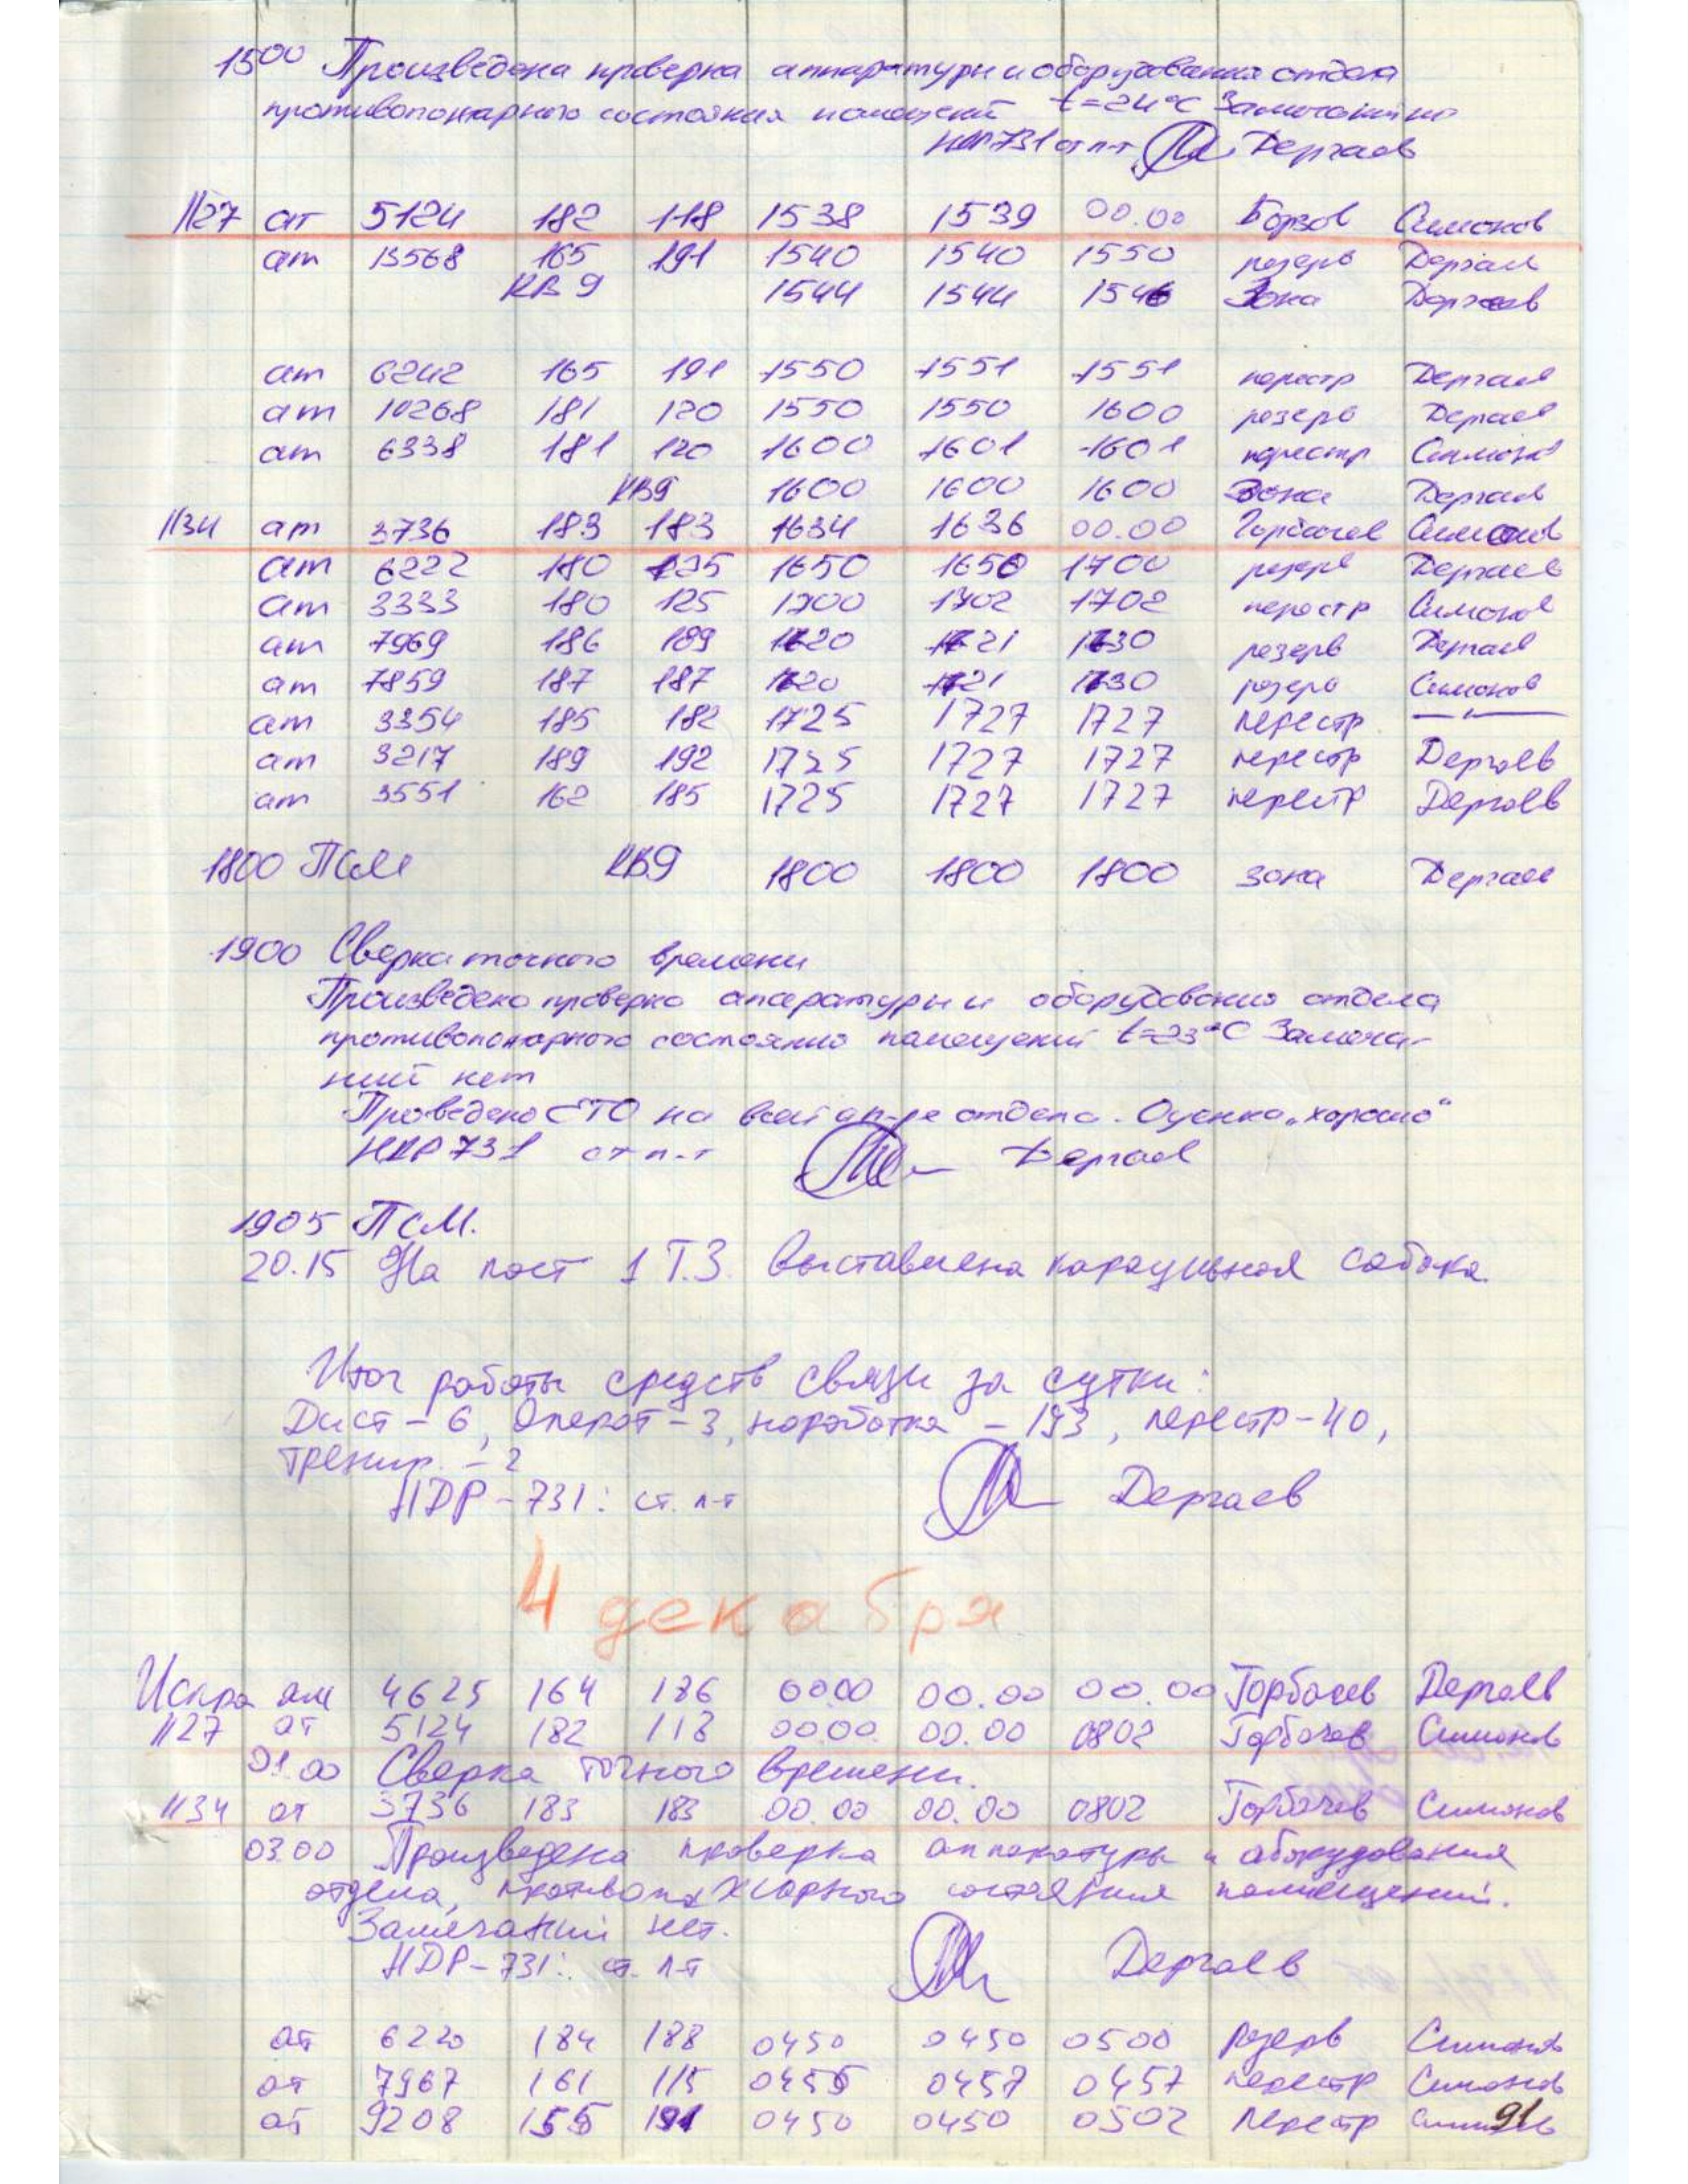 1500 Произведена проверка аппаратуры и оборудования отдела
противопожарного состояния помещений t=24°C Замечаний но
НДР731 ст л-т Дергаев
1127 ат 5124 182 118 1538 1539 00.00 Борзов Симонов
ат 13568 165 191 1540 1540 1550 резерв Дергаев
КВ9 1544 1544 1546 Зона Дергаев
ат 6242 165 191 1550 1551 1551 перестр Дергаев
ат 10268 181 120 1550 1550 1600 резерв Дергаев
ат 6338 181 120 1600 1601 1601 перестр Симонов
КВ9 1600 1600 1600 Зона Дергаев
1134 ат 3736 183 183 1634 1636 00.00 Горбачев Симонов
ат 6222 180 125 1650 1650 1700 резерв Дергаев
ат 3333 180 125 1700 1702 1702 перестр Симонов
ат 7969 186 189 1720 1721 1730 резерв Дергаев
ат 7859 187 187 1720 1721 1730 резерв Симонов
ат 3354 185 182 1725 1727 1727 перестр — " —
ат 3217 189 192 1725 1727 1727 перестр Дергаев
ат 3551 162 185 1725 1727 1727 перестр Дергаев
1800 ПСМ КВ9 1800 1800 1800 зона Дергаев
1900 Сверка точного времени
Произведено проверка аппаратуры и оборудования отдела
противопожарного состояния помещений t=23°C Замеча-
ний нет
Проведено ЕТО на всей ап-ре отдела. Оценка „хорошо"
НДР731 ст л-т Дергаев
1905 ПСМ.
20.15 На пост 1 Т.З. выставлена караульная собака.
Итог работы средств связи за сутки:
Дист – 6, Операт – 3, наработка – 193, перестр – 40,
тренир. – 2
НДР – 731: ст. л-т Дергаев
4 декабря
Искра ам 4625 164 186 00.00 00.00 00.00 Горбачев Дергаев
1127 ат 5124 182 118 00.00 00.00 0802 Горбачев Симонов
01.00 Сверка точного времени.
1134 ат 3736 183 183 00.00 00.00 0802 Горбачев Симонов
03.00 Произведена проверка аппаратуры и оборудования
отдела, противопожарного состояния помещений.
Замечаний нет.
НДР – 731: ст. л-т Дергаев
ат 6220 184 188 0450 0450 0500 резерв Симонов
ат 7967 161 115 0455 0457 0457 перестр Симонов
ат 9208 155 191 0450 0450 0502 перестр Симонов
91